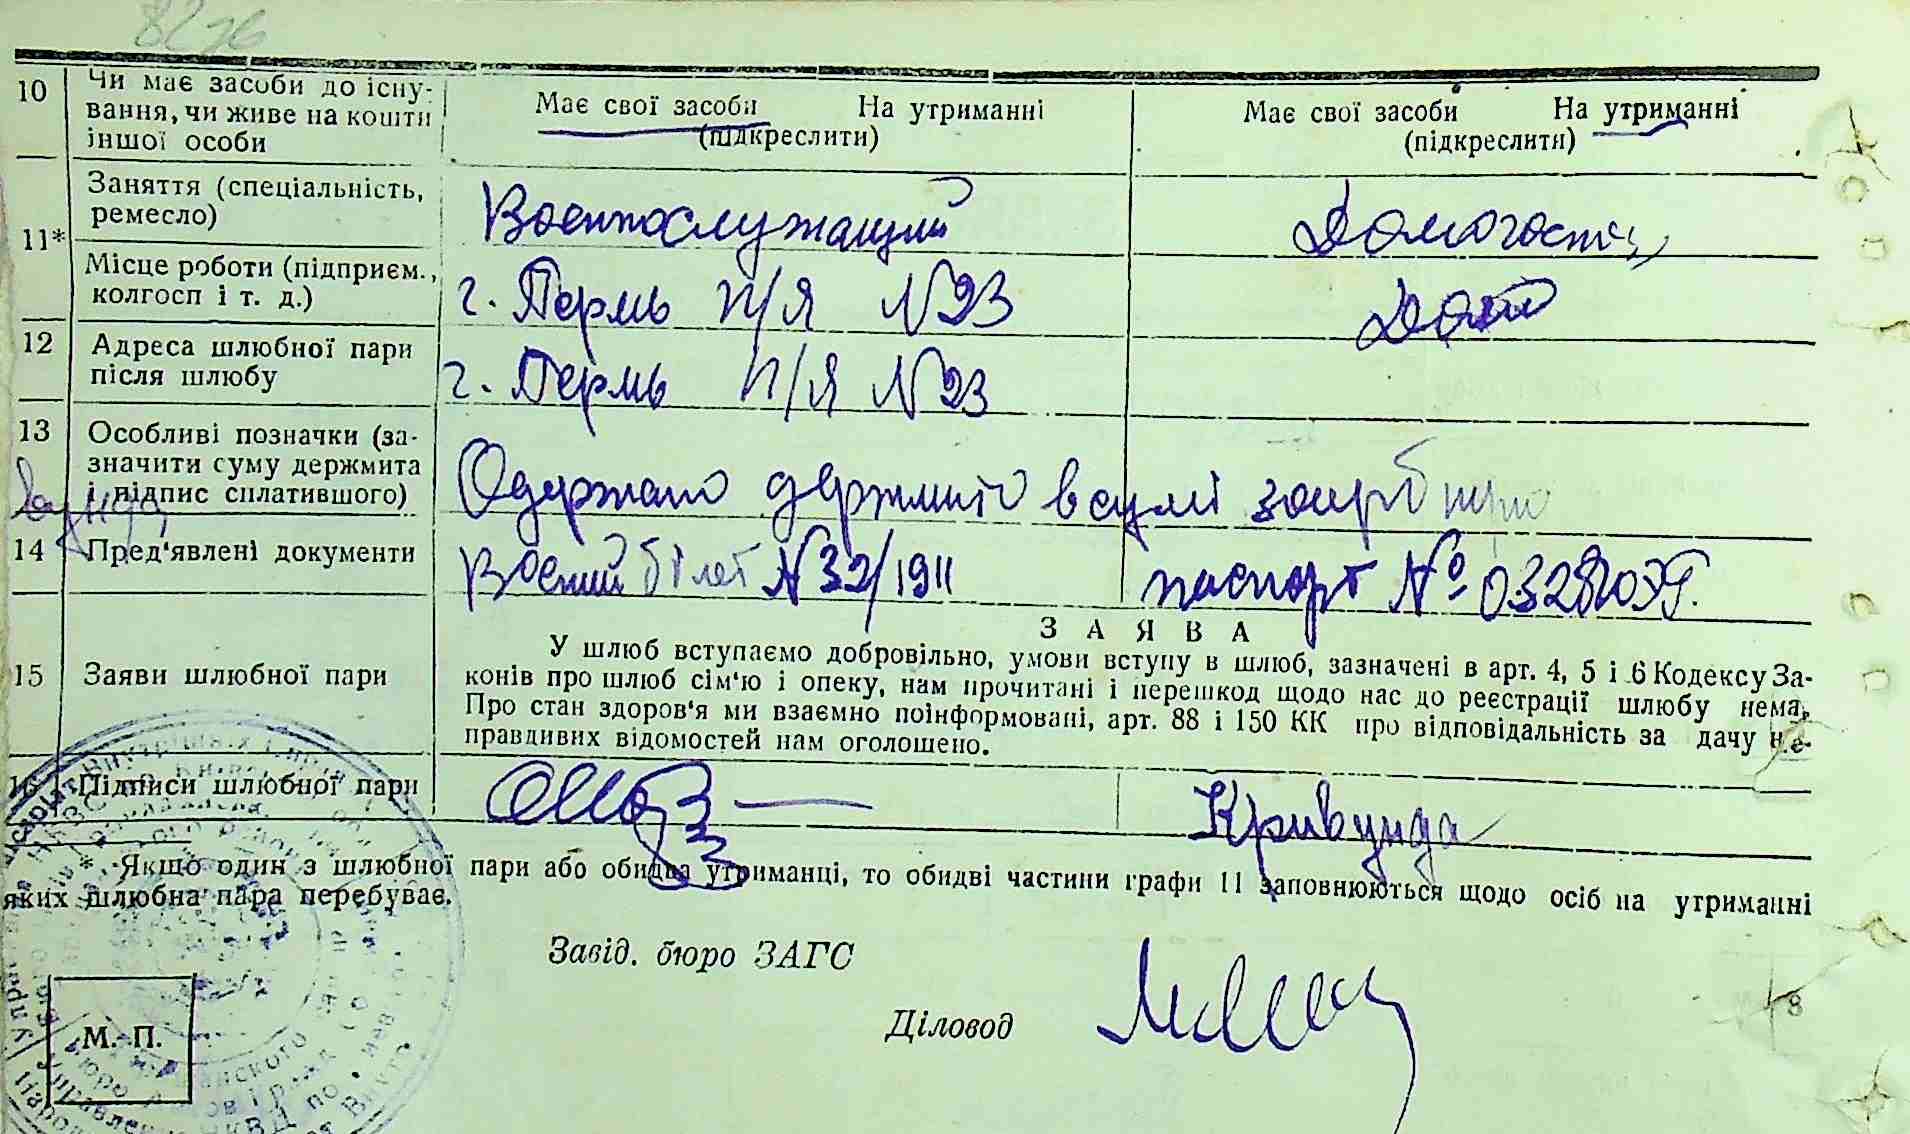 8276
10 Чи має засоби до існу-
вання, чи живе на кошти
іншої особи
Має свої засоби На утриманні
(підкреслити)
Має свої засоби На утриманні
(підкреслити)
11*
Заняття (спеціальність,
ремесло)
Военнослужащий
Місце роботи (підприєм.,
колгосп і т. д.)
г. Пермь п/я N23
12 Адреса шлюбної пари
після шлюбу
г. Пермь п/я N23
13 Особливі позначки (за-
значити суму держмита
і підпис сплатившого)
Одержано держмито в сумі
14 Пред'явлені документи
Воєний білет N32/1911
паспорт №
15 Заяви шлюбної пари
ЗАЯВА
У шлюб вступаємо добровільно, умови вступу в шлюб, зазначені в арт. 4, 5 і 6 Кодексу За-
конів про шлюб сім'ю і опеку, нам прочитані і перешкод щодо нас до реєстрації шлюбу нема,
Про стан здоров'я ми взаємно поінформовані, арт. 88 і 150 КК про відповідальність за дачу не-
правдивих відомостей нам оголошено.
16 Підписи шлюбної пари
Кривунда
* Якщо один з шлюбної пари або обидва утриманці, то обидві частини графи 11 заповнюються щодо осіб на утриманні
яких шлюбна пара перебуває.
Завід. бюро ЗАГС
Діловод
М. П.
8